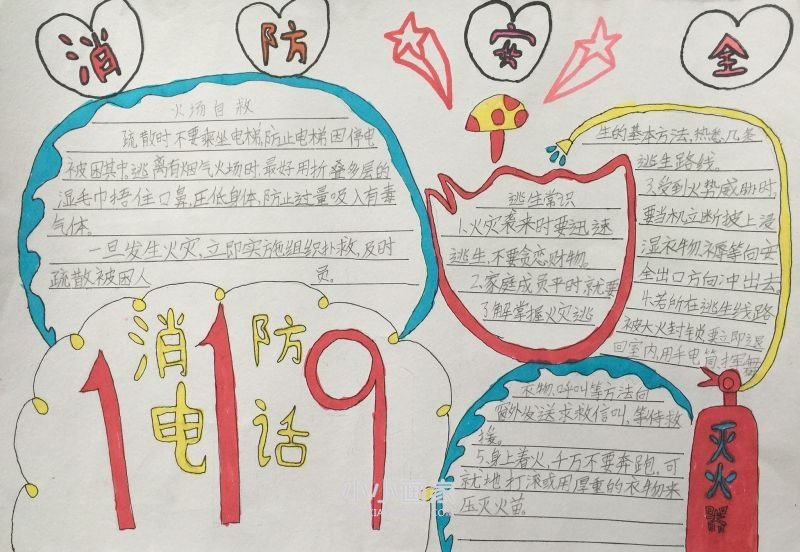 消防安全
火场自救
疏散时不要乘坐电梯,防止电梯因停电
被困其中,逃离有烟气火场时,最好用折叠多层的
湿毛巾捂住口鼻,压低身体,防止过量吸入有毒
气体。
一旦发生火灾,立即实施组织扑救,及时
疏散被困人员。
消防
电话
119
逃生常识
1.火灾袭来时要迅速
逃生,不要贪恋财物。
2.家庭成员平时就要
了解掌握火灾逃
生的基本方法,热悉几条
逃生路线。
3.受到火势威胁时,
要当机立断披上浸
湿衣物、褥等向安
全出口方向冲出去
4.若所在逃生线路
被大火封锁要立即退
回室内用手电筒,挥舞
衣物,呼叫等方法向
窗外发送求救信叫,等待救
援。
5.身上着火,千万不要奔跑,可
就地打滚或用厚重的衣物来
压灭火苗。
灭火器
小小画家